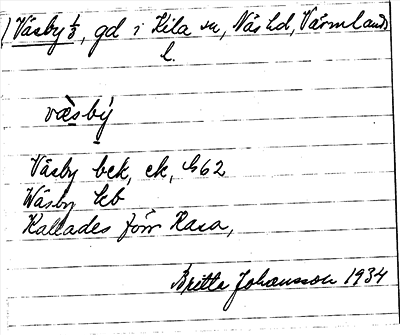 (Väsby 1/3, gd i Kila sn, Näs hd, Värmland)
l.
væ̀sbý
Väsby bek, ek, h62
Wäsby kb
Kallades förr Rasa,
Britta Johansson 1934